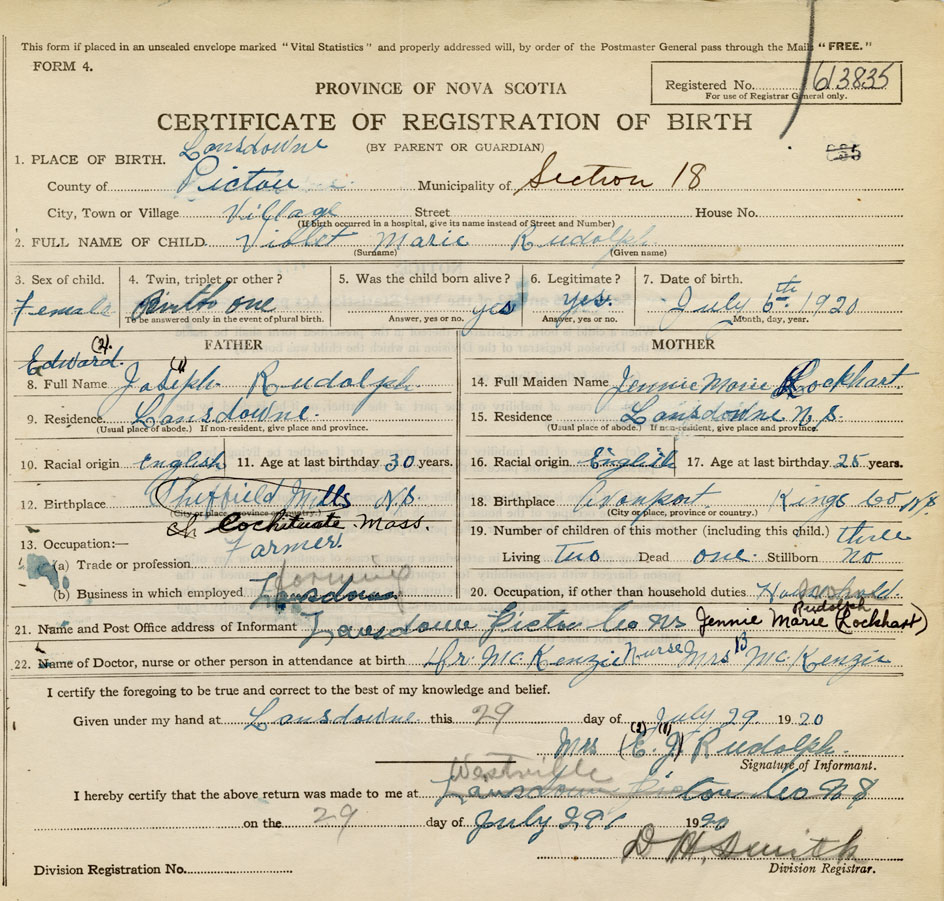 This form if placed in an unsealed envelope marked "Vital Statistics" and properly addressed will, by order of the Postmaster General pass through the Mails "FREE."
FORM 4.
Registered No. 613835
For use of Registrar General only.
PROVINCE OF NOVA SCOTIA
CERTIFICATE OF REGISTRATION OF BIRTH
(BY PARENT OR GUARDIAN)
1. PLACE OF BIRTH. Lansdowne
County of Pictou Municipality of Section 18
City, Town or Village Village Street House No.
(If birth occurred in a hospital, give its name instead of Street and Number)
2. FULL NAME OF CHILD. Violet Marie Rudolph
(Surname) (Given name)
3. Sex of child. 4. Twin, triplet or other? 5. Was the child born alive? 6. Legitimate? 7. Date of birth.
Female one yes yes. July 6th 1920
To be answered only in the event of plural birth. Answer, yes or no. Answer, yes or no. Month, day, year.
FATHER MOTHER
Edward (2). (1)
8. Full Name Joseph Rudolph 14. Full Maiden Name Jennie Marie Lockhart
9. Residence Lansdowne. 15. Residence Lansdowne N.S.
(Usual place of abode.) If non-resident, give place and province. (Usual place of abode.) If non-resident, give place and province.
10. Racial origin English 11. Age at last birthday 30 years. 16. Racial origin English 17. Age at last birthday 25 years.
12. Birthplace Sheffield Mills N.S. 18. Birthplace Avonport Kings Co N.S
(City or place, province or country.) (City or place, province or country.)
Cochituate Mass.
19. Number of children of this mother (including this child.) three
13. Occupation:—
(a) Trade or profession Farmer Living two Dead one Stillborn no
(b) Business in which employed farming Lansdowne 20. Occupation, if other than household duties Household
21. Name and Post Office address of Informant Lansdowne Pictou Co NS Jennie Marie Rudolph (Lockhart)
22. Name of Doctor, nurse or other person in attendance at birth Dr. McKenzie Nurse Mrs B McKenzie
I certify the foregoing to be true and correct to the best of my knowledge and belief.
Given under my hand at Lansdowne this 29 day of July 29 1920
(2) (1)
Mrs (E. J) Rudolph.
Signature of Informant.
Westville
I hereby certify that the above return was made to me at Lansdowne Pictou Co N S
on the 29 day of July 29 1920
D H. Smith
Division Registration No. Division Registrar.